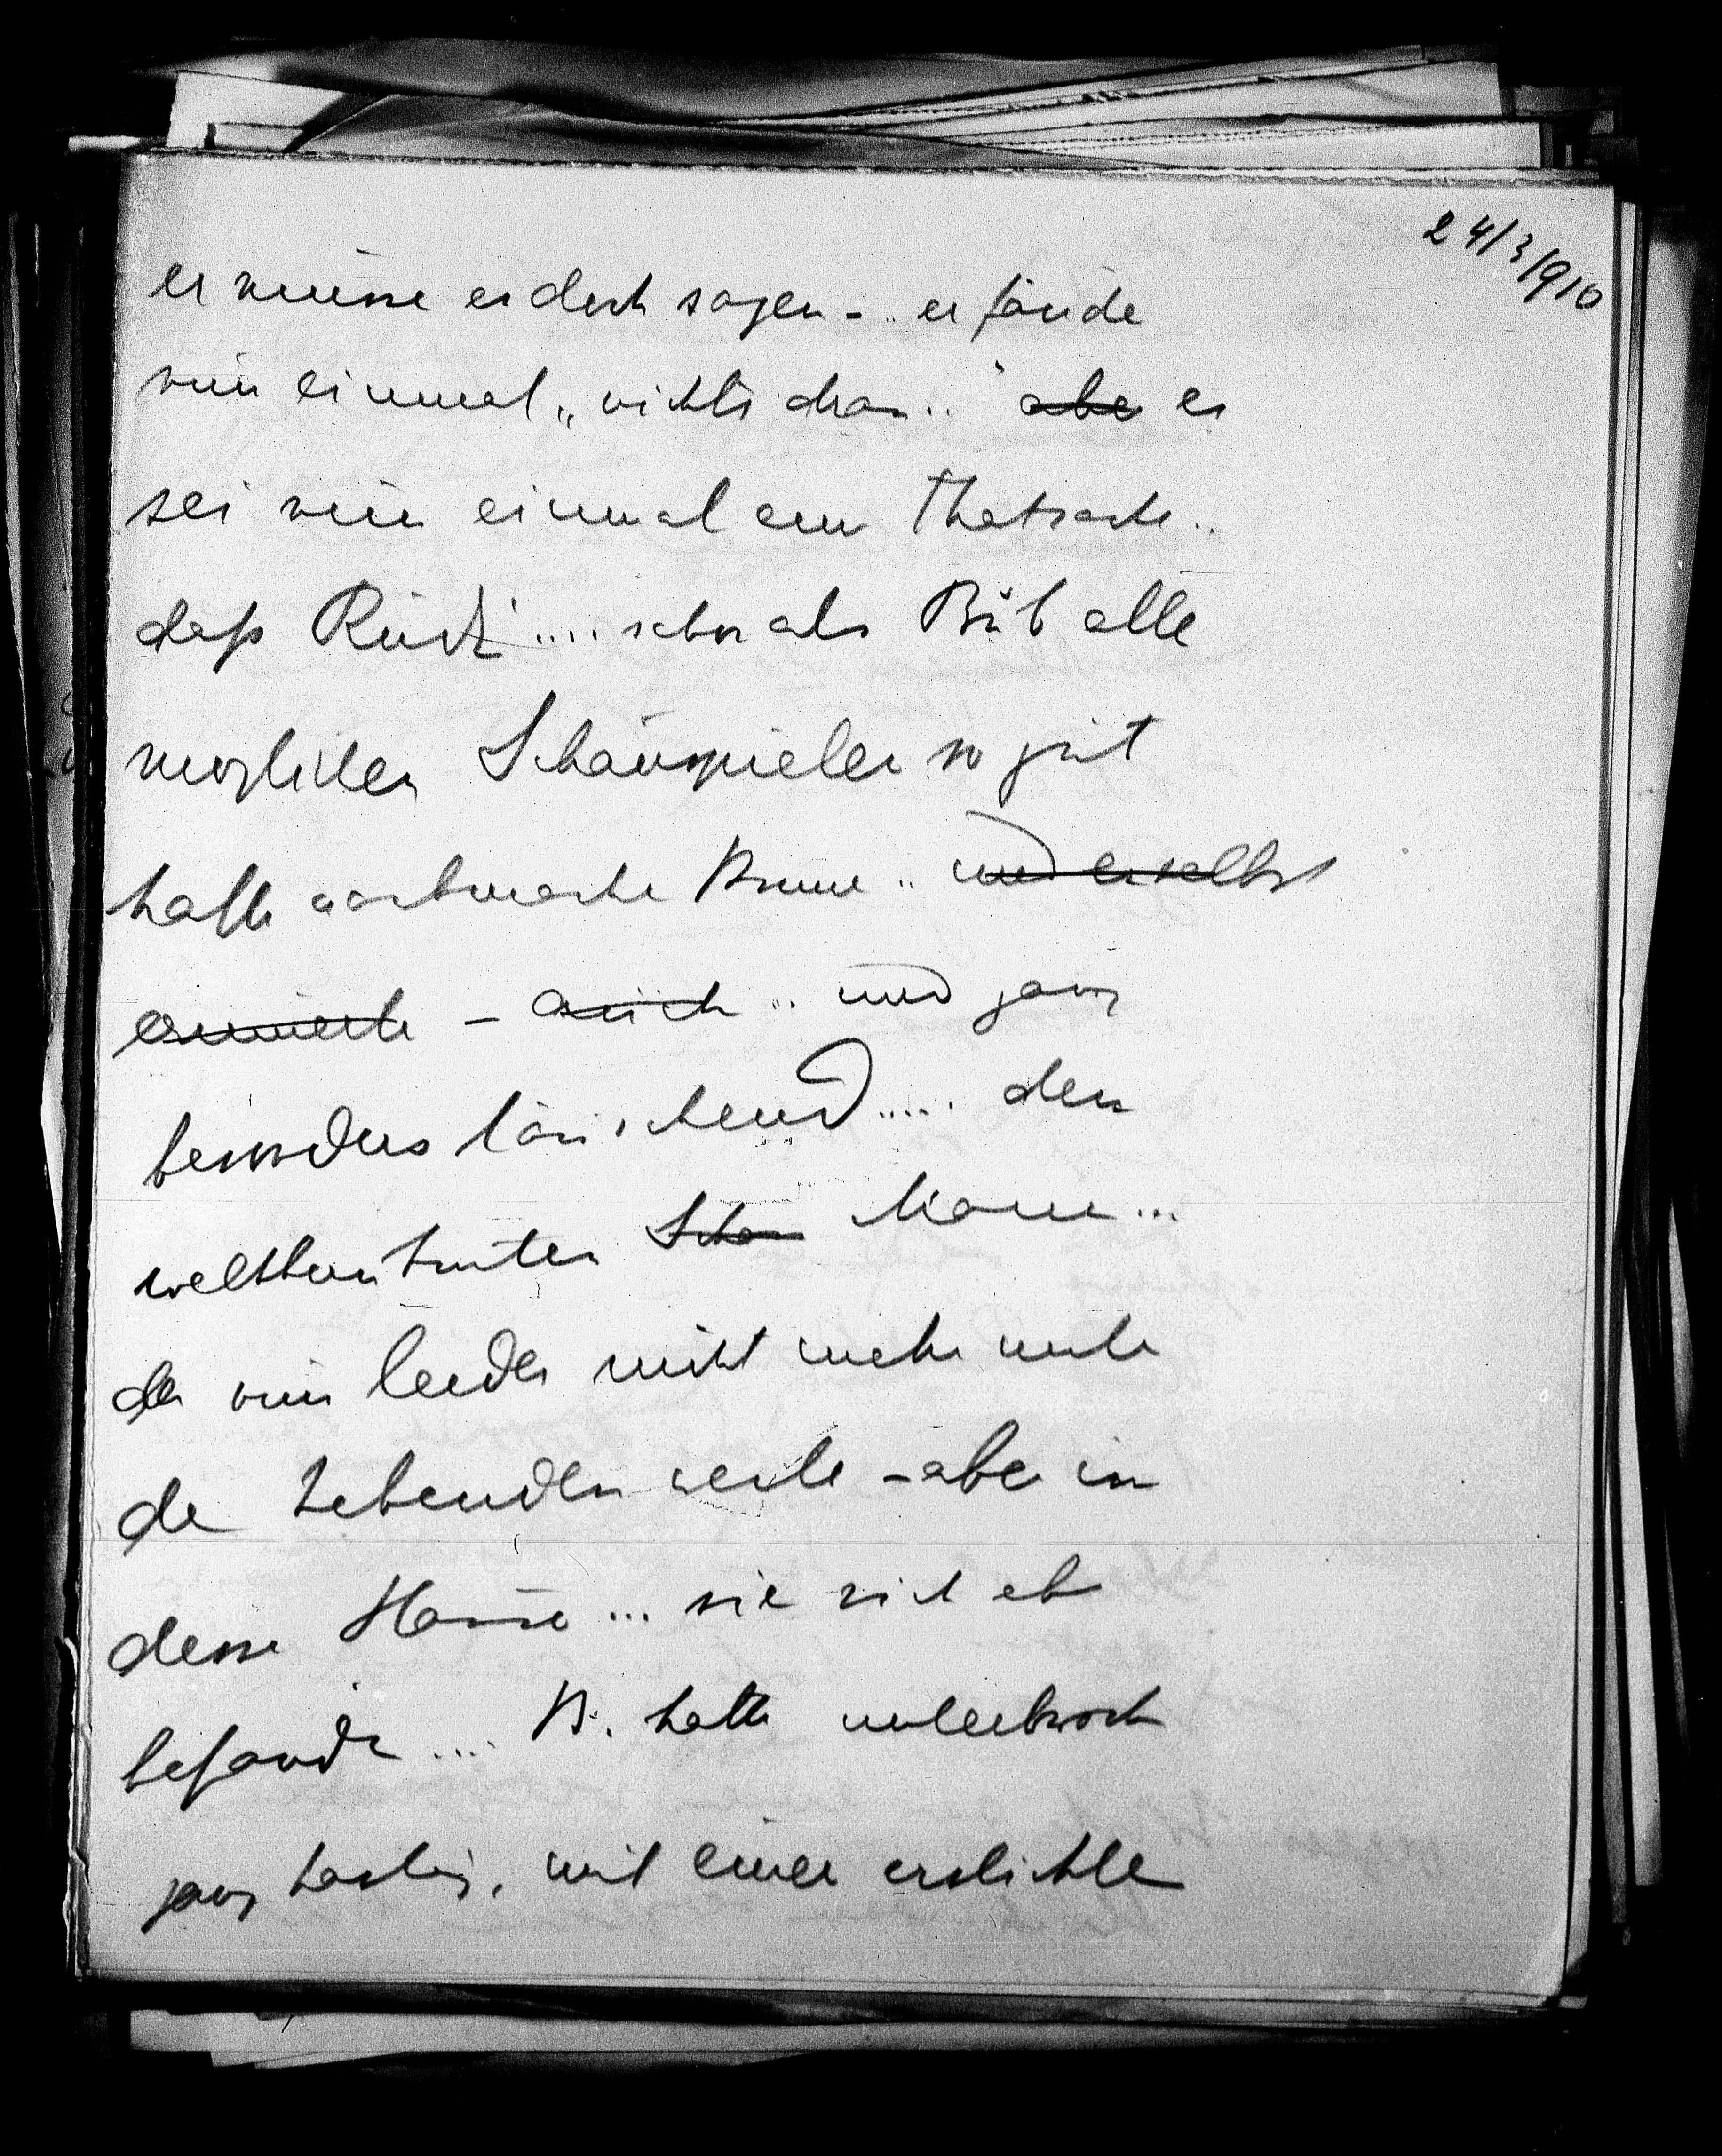 24/3/910
er müsse es doch sagen - .. er fände
nun einmal „nichts dran.." aber es
sei nun einmal eine Thatsache..
daß Rudi .... schon als Bub alle
möglichen Schauspieler so gut
hatte nachmachen können .. und er selbst
- auch .. und ganz
besonders täuschend ..... den
weltberühmten Schau Mann...
der nun leider nicht mehr unter
den Lebenden weile - aber in
dessen Hause ... sie sich eben
befänden .... B. hatte unterbrochen
ganz hastig, mit einer ersichtlichen